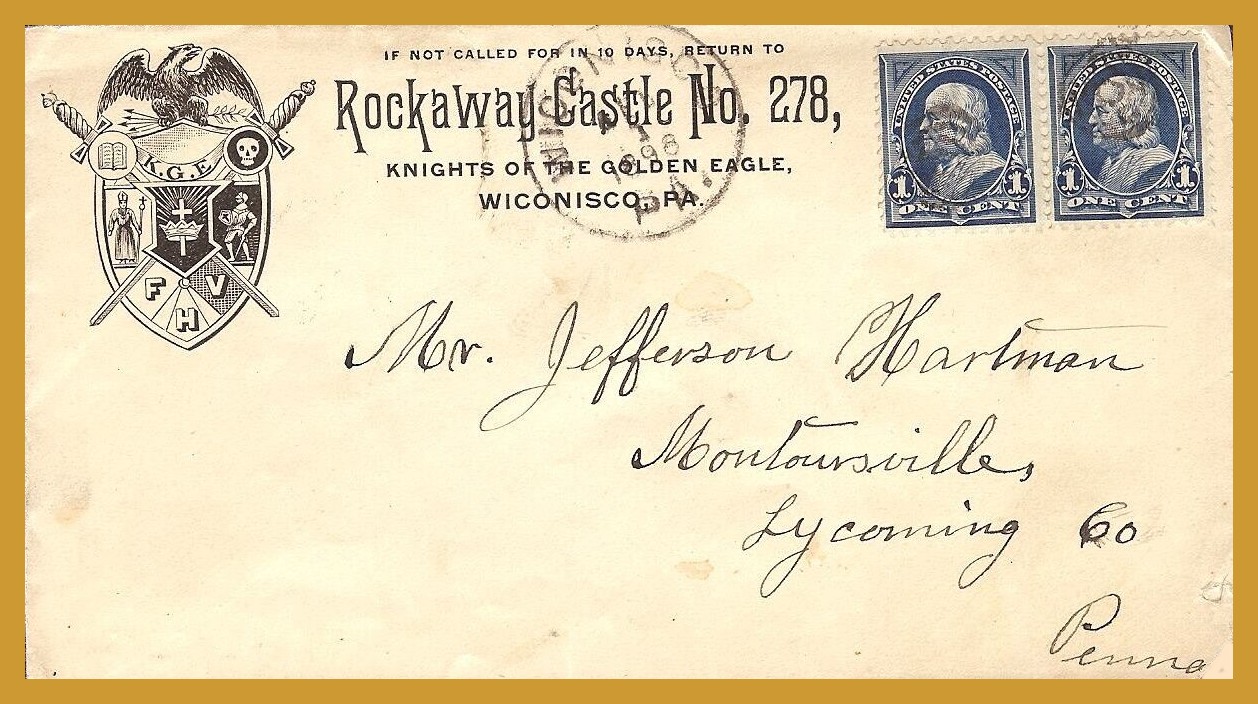 IF NOT CALLED FOR IN 10 DAYS, RETURN TO
Rockaway Castle No. 278,
KNIGHTS OF THE GOLDEN EAGLE,
WICONISCO, PA.
K.G.E.
F H V
WICONISCO
1898
PA.
UNITED STATES POSTAGE
1 1
ONE CENT
UNITED STATES POSTAGE
1 1
ONE CENT
Mr. Jefferson Hartman
Montoursville,
Lycoming Co
Penna